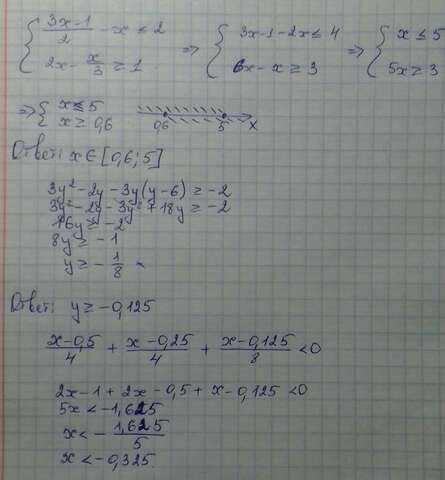 { (3x-1)/2 - x ≤ 2 => { 3x-1-2x ≤ 4 => { x ≤ 5
{ 2x - x/3 ≥ 1 { 6x - x ≥ 3 { 5x ≥ 3
=> { x ≤ 5
{ x ≥ 0,6 0,6 5 x
Ответ: x ∈ [0,6; 5]
3y² - 2y - 3y(y-6) ≥ -2
3y² - 2y - 3y² + 18y ≥ -2
16y ≥ -2
8y ≥ -1
y ≥ - 1/8
Ответ: y ≥ -0,125
(x-0,5)/4 + (x-0,25)/4 + (x-0,125)/8 < 0
2x-1 + 2x-0,5 + x-0,125 < 0
5x < -1,625
x < - 1,625/5
x < -0,325